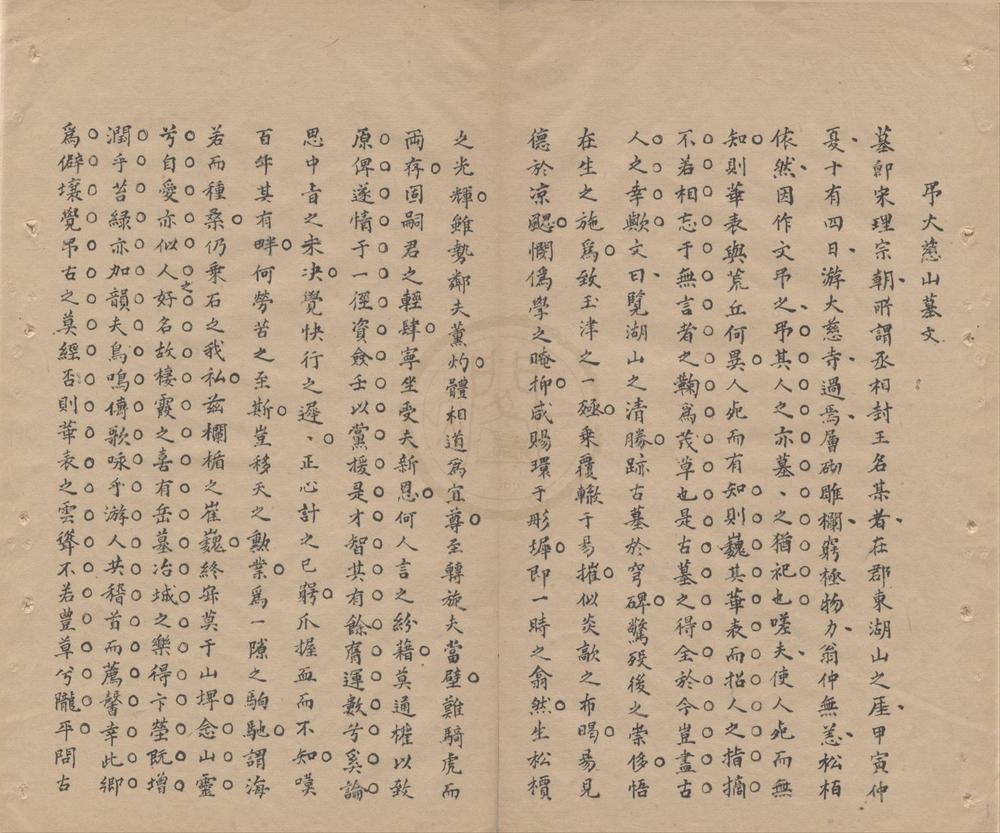 弔大慈山墓文
墓卽宋理宗朝所謂丞相封王名某者在郡東湖山之厓甲寅仲
夏十有四日游大慈寺過焉層砌雕欄窮極物力翁仲無恙松栢
依然因作文弔之弔其人之亦墓、之猶祀也嗟夫使人死而無
知則華表與荒丘何異人死而有知則巍其華表而招人之指摘
不若相忘于無言者之鞠爲茂草也是古墓之得全於今豈盡古
人之幸歟文曰覽湖山之清勝跡古墓於穹碑驚歿後之崇侈悟
在生之施爲致玉津之一殛乗覆轍于昜摧似炎歊之布暍昜見
德於凉颸憫僞學之晻抑咸賜環于彤墀即一時之翕然生松檟
之光輝雖勢鄰夫薰灼體相道爲宜尊至轉旋夫當壁難騎虎而
両存固嗣君之輕肆寧坐受夫新恩何人言之紛籍莫通權以致
原俾遂情于一徑資僉壬以黨援是才智其有餘齎運數兮奚論
思中旨之来决覺快行之遲、正心計之已窮爪握血而不知嘆
百年其有畔何勞苦之至斯豈移天之勲業爲一隙之駒馳謂海
若而種桑仍乗石之我私玆欄楯之崔巍終寂莫于山埤念山靈
兮自愛亦似人之好名故棲霞之喜有岳墓冶城之樂得卞塋既增
潤乎苔綠亦加韻夫鳥鳴傳歌咏乎游人共稽首而薦馨幸此鄉
爲僻壤覺弔古之莫經否則華表之雲聳不若豊草兮隴平閟古